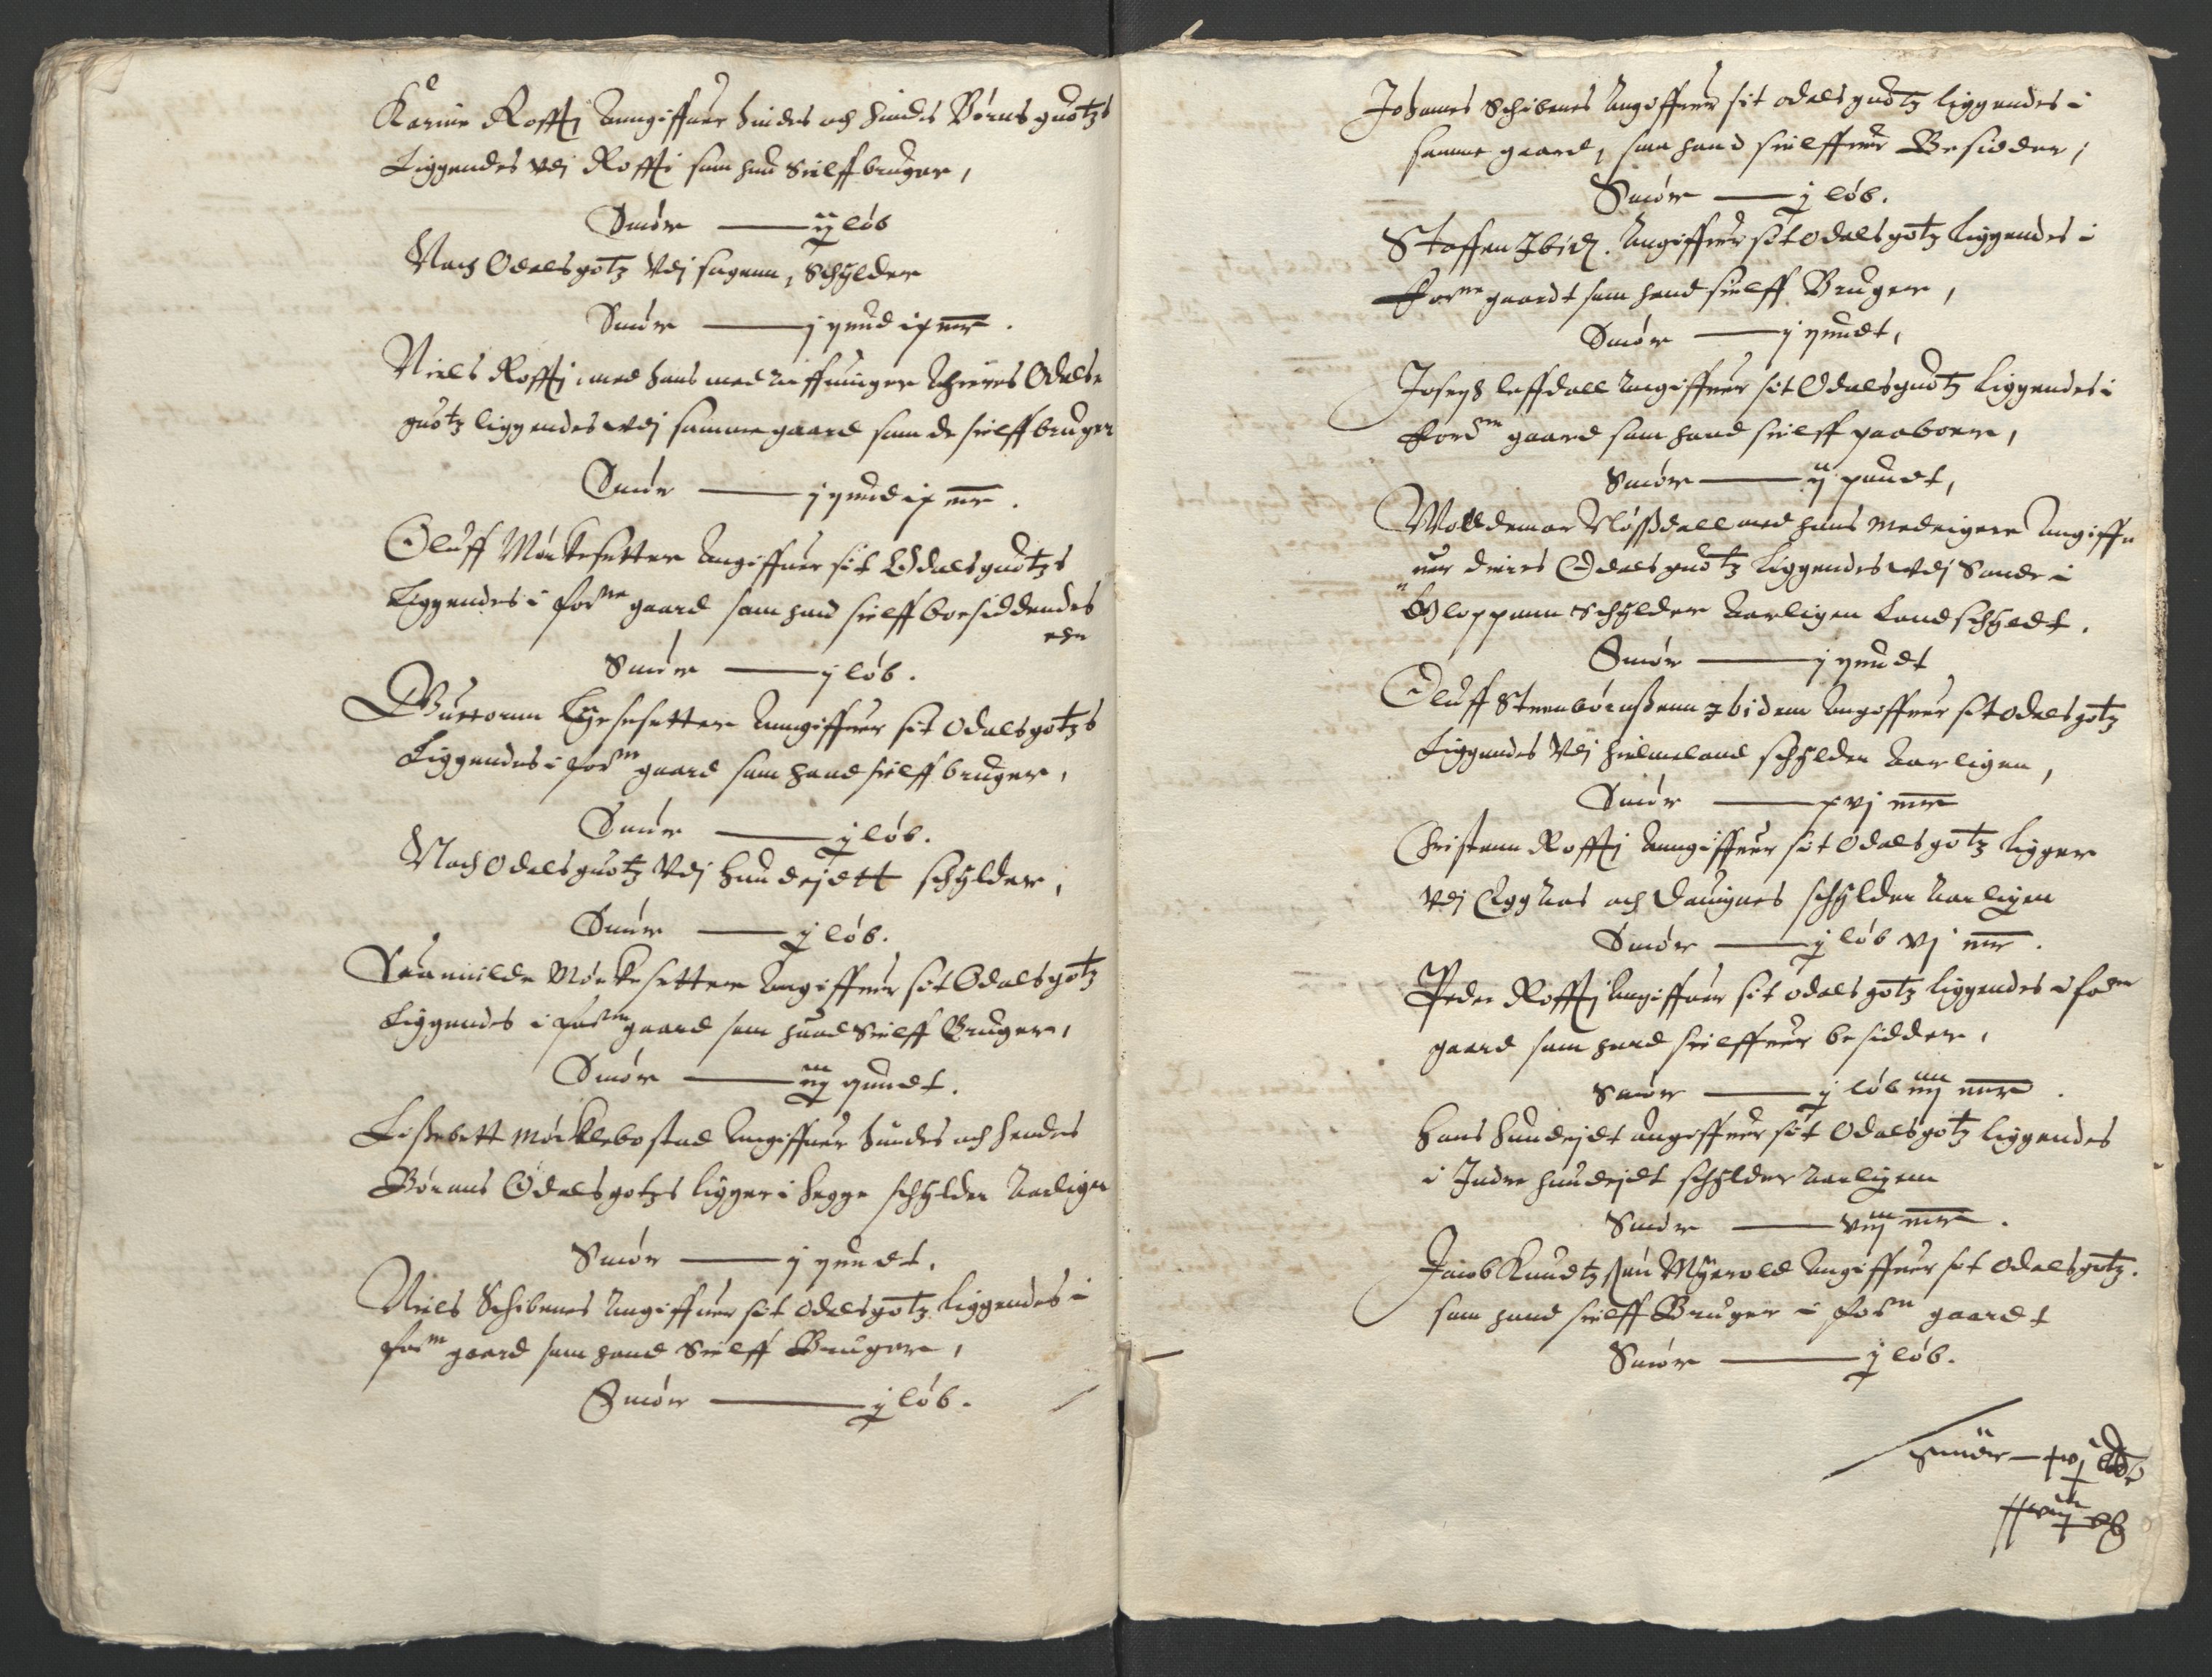 Karine Roffti Anngiffuer hindes och hindes Børns guotzs
Liggendes vdj Roffti som hun Sielff bruger,
Smør —— ij løb
Nach Odels gotz vdj sagenn, Schylder
Smør —— j pund ix mr.
Niels Roffti med hans med arffuinger Theires Odels
guotz liggendes vdj samme gaard som de sielff bruger
Smør —— j pund ix mr.
Oluff Mörkesetter Angiffuer sit Odals guotzs
Liggendes i forne gaard som hand sielff boesiddendes
er
Smør —— j løb.
Guttorm Gyesesetter Anngiffuer sit Odals gotzs
Liggendes i forn gaard som hand sielff bruger,
Smør —— j løb.
Nach Odels guotz vdj Hundejdett schylder,
Smør —— j løb.
Mörkesetter Angiffuer sit Odals gotz
Liggendes i forn gaard som hund Sielff Bruger,
Smør —— iij pundt.
Lissebett Mörcklebostad Angiffuer hindes och hendes
Børnns Odels gotzs ligger i Hegge schylder Aarligen
Smør —— j pundt.
Niels Schibenes Angiffuer sit Odels gotz liggendes i
forn gaard som hand Sielff Bruger,
Smør —— j løb.
Johanes Schibenes Angiffuer sit odels guotz liggendes i
samme gaard, som hand sielffuer Besidder,
Smør —— j løb.
Staffen Ibid. Angiffuer sit odels gotz liggendes i
Forne gaardt som hand sielff Bruger,
Smør —— j pundt,
Joseph leffdall Angiffuer sit Odels guotz liggendes i
Fordn gaard som hand sielff paaboer,
Smør —— ij pundt,
Wolldemar Nøssdall med hans medeigere Angiff-
uer dieres Odels guotz liggendes vdj Sande i
Gloppenn schylder Aarligen Landschyldt.
Smør —— j pundt
Oluff Steenbörnssenn Ibidem Angiffuer sit odels gotz
Liggendes vdj hielmeland schylder Aarligen,
Smør —— xvj mr
Christenn Roffti Anngiffuer sit Odels gotz ligger
vdj Eggnes och Dauignes schylder Aarligen
Smør —— j løb vj mr.
Peder Roffti Angiffuer sit odels gotz liggendes i forn
gaard som hand sielffuer besidder,
Smør —— j løb iiij mr.
Hans Hundejdt angiffuer sit Odels gotz liggendes
i Indre hundejdt schylder Aarligenn
Smør —— viij mr.
Jacob Knudtzsøn Myerold Angiffuer sit Odels gotz.
som hand sielff Bruger i forn gaardt
Smør —— j løb.
Smör — xvj